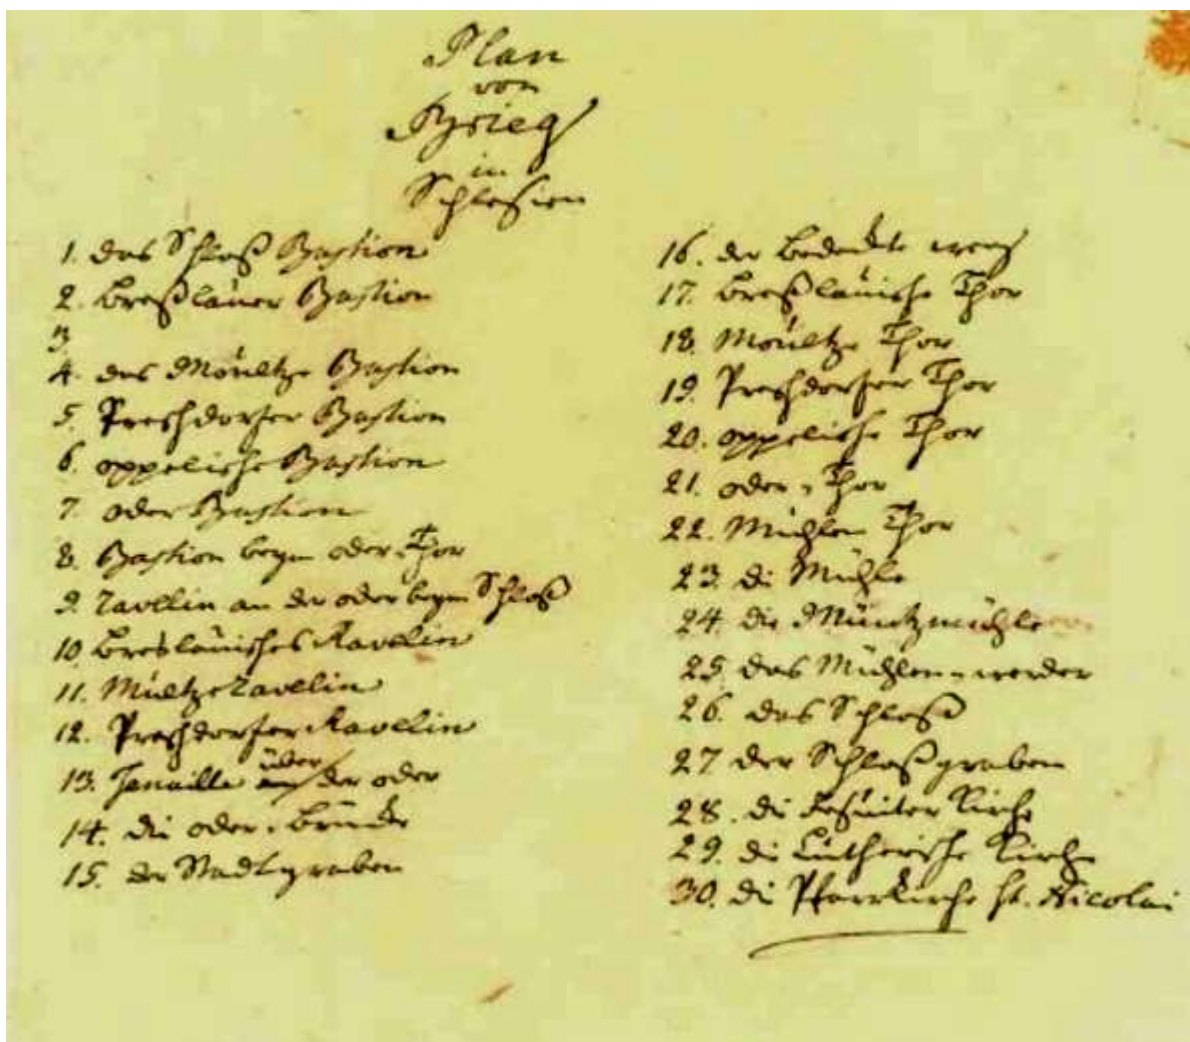 Plan
von
Brieg
in
Schlesien
1. das Schloß Bastion
2. Breßlauer Bastion
3
4. das Moültze Bastion
5. Preschdorfer Bastion
6. oppelische Bastion
7. oder Bastion
8. Bastion beym oder Thor
9. Ravellin an der oder beym Schloß
10. Breslauisches Ravelin
11. Mültze Ravelin
12. Preschdorfer Ravelin
13. Tenaille über der oder
14. die oder-Brücke
15. der Stadtgraben
16. der bedeckte weeg
17. Breßlauische Thor
18. Moültze Thor
19. Preschdorfer Thor
20. oppelische Thor
21. oder-Thor
22. Mühlen Thor
23. di Mühle
24. die Müntzmühle
25. das Mühlen-werder
26. das Schloß
27 der Schloßgraben
28. di Jesuiter Kirche
29. di Lutherische Kirche
30. di Pfarrkirche St. Nicolai